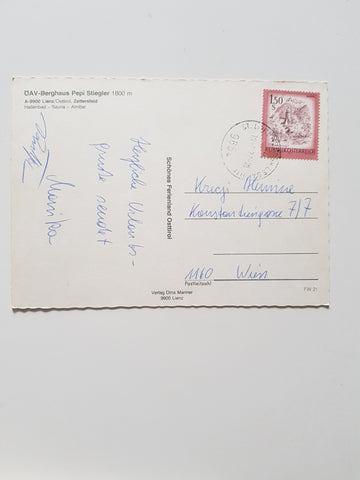 ÖAV-Berghaus Pepi Stiegler 1800 m
A-9900 Lienz/Osttirol, Zettersfeld
Hallenbad - Sauna - Almbar
Herzliche Urlaubs-
grüße sendet
Monika
Schönes Ferienland Osttirol
1.50
S
REPUBLIK ÖSTERREICH
9990
Krejci
Konstantingasse 7/7
1160 Wien
Postleitzahl
Verlag Oma Mariner
9900 Lienz
FW 21